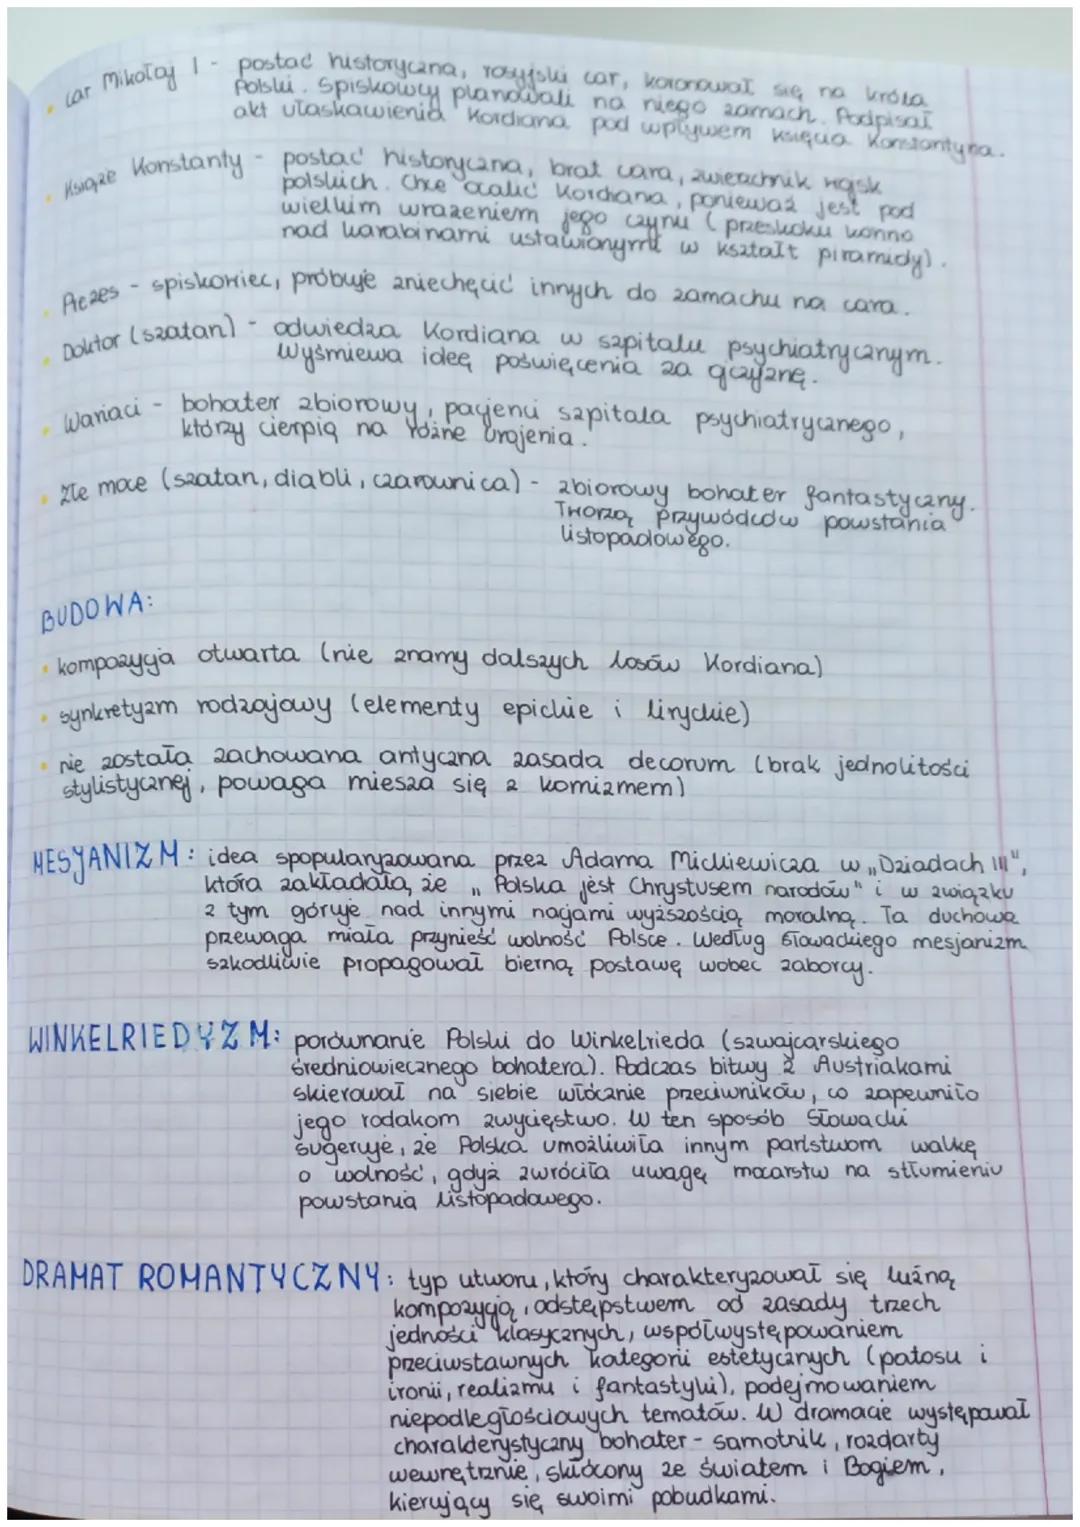 • car Mikołaj I - postać historyczna, rosyjski car, koronował się na króla
Polski. Spiskowcy planowali na niego zamach. Podpisał
akt ułaskawienia Kordiana pod wpływem księcia Konstantyna.
• Książe Konstanty - postać historyczna, brat cara, zwierzchnik wojsk
polskich. Chce ocalić Kordiana, ponieważ jest pod
wielkim wrażeniem jego czynu (przeskoku konno
nad karabinami ustawionymi w kształt piramidy).
• Prezes - spiskowiec, próbuje zniechęcić innych do zamachu na cara.
• Doktor (szatan) - odwiedza Kordiana w szpitalu psychiatrycznym.
Wyśmiewa ideę poświęcenia za ojczyznę.
• Wariaci - bohater zbiorowy, pacjenci szpitala psychiatrycznego,
którzy cierpią na różne urojenia.
• złe moce (szatan, diabli, czarownica) - zbiorowy bohater fantastyczny.
Tworzą przywódców powstania
listopadowego.
BUDOWA:
• kompozycja otwarta (nie znamy dalszych losów Kordiana)
• synkretyzm rodzajowy (elementy epickie i liryckie)
• nie została zachowana antyczna zasada decorum (brak jednolitości
stylistycznej, powaga miesza się z komizmem)
MESJANIZM: idea spopularyzowana przez Adama Mickiewicza w „Dziadach III",
która zakładała, że „Polska jest Chrystusem narodów" i w związku
z tym góruje nad innymi nacjami wyższością moralną. Ta duchowa
przewaga miała przynieść wolność Polsce. Według Słowackiego mesjanizm
szkodliwie propagował bierną postawę wobec zaborcy.
WINKELRIEDYZM: porównanie Polski do Winkelrieda (szwajcarskiego
średniowiecznego bohatera). Podczas bitwy z Austriakami
skierował na siebie włócznie przeciwników, co zapewniło
jego rodakom zwycięstwo. W ten sposób Słowacki
sugeruje, że Polska umożliwiła innym państwom walkę
o wolność, gdyż zwróciła uwagę mocarstw na stłumieniu
powstania listopadowego.
DRAMAT ROMANTYCZNY: typ utworu, który charakteryzował się luźną
kompozycją, odstępstwem od zasady trzech
jedności klasycznych, współwystępowaniem
przeciwstawnych kategorii estetycznych (patosu i
ironii, realizmu i fantastyki), podejmowaniem
niepodległościowych tematów. W dramacie występował
charakterystyczny bohater - samotnik, rozdarty
wewnętrznie, skłócony ze światem i Bogiem,
kierujący się swoimi pobudkami.